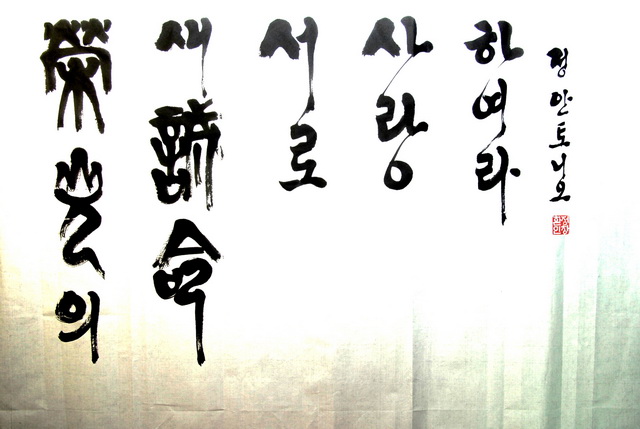 榮光의
새誡命
서로
사랑
하여라
정안토니오